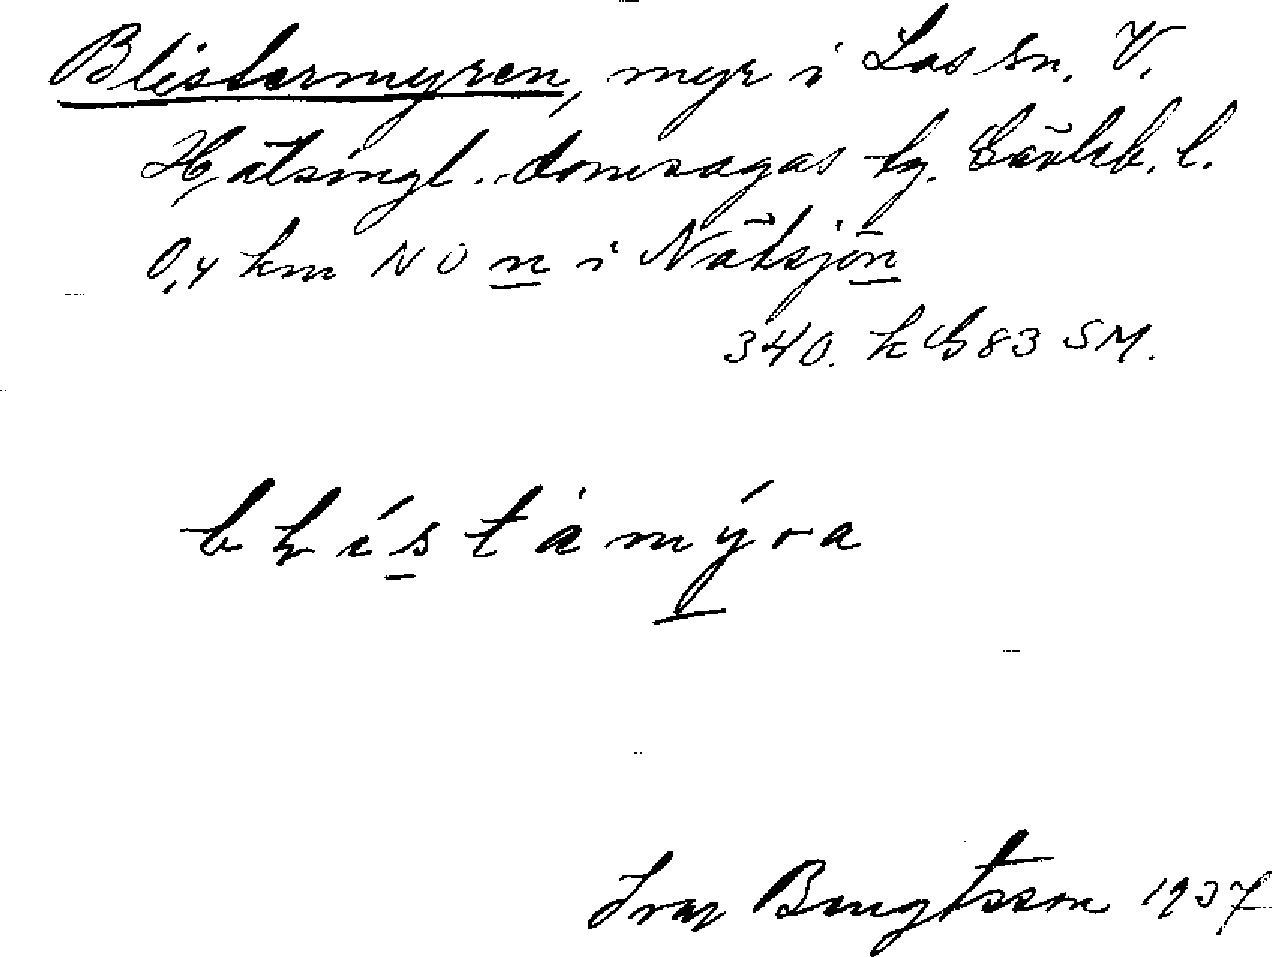 Blistermyren, myr i Los sn. V.
Hälsingl. domsagas tg. Gävleb. l.
0,4 km NO n i Nätsjön
340. k G 83 SM.
b l i s t a m ý r a
Ivar Bengtsson 1937